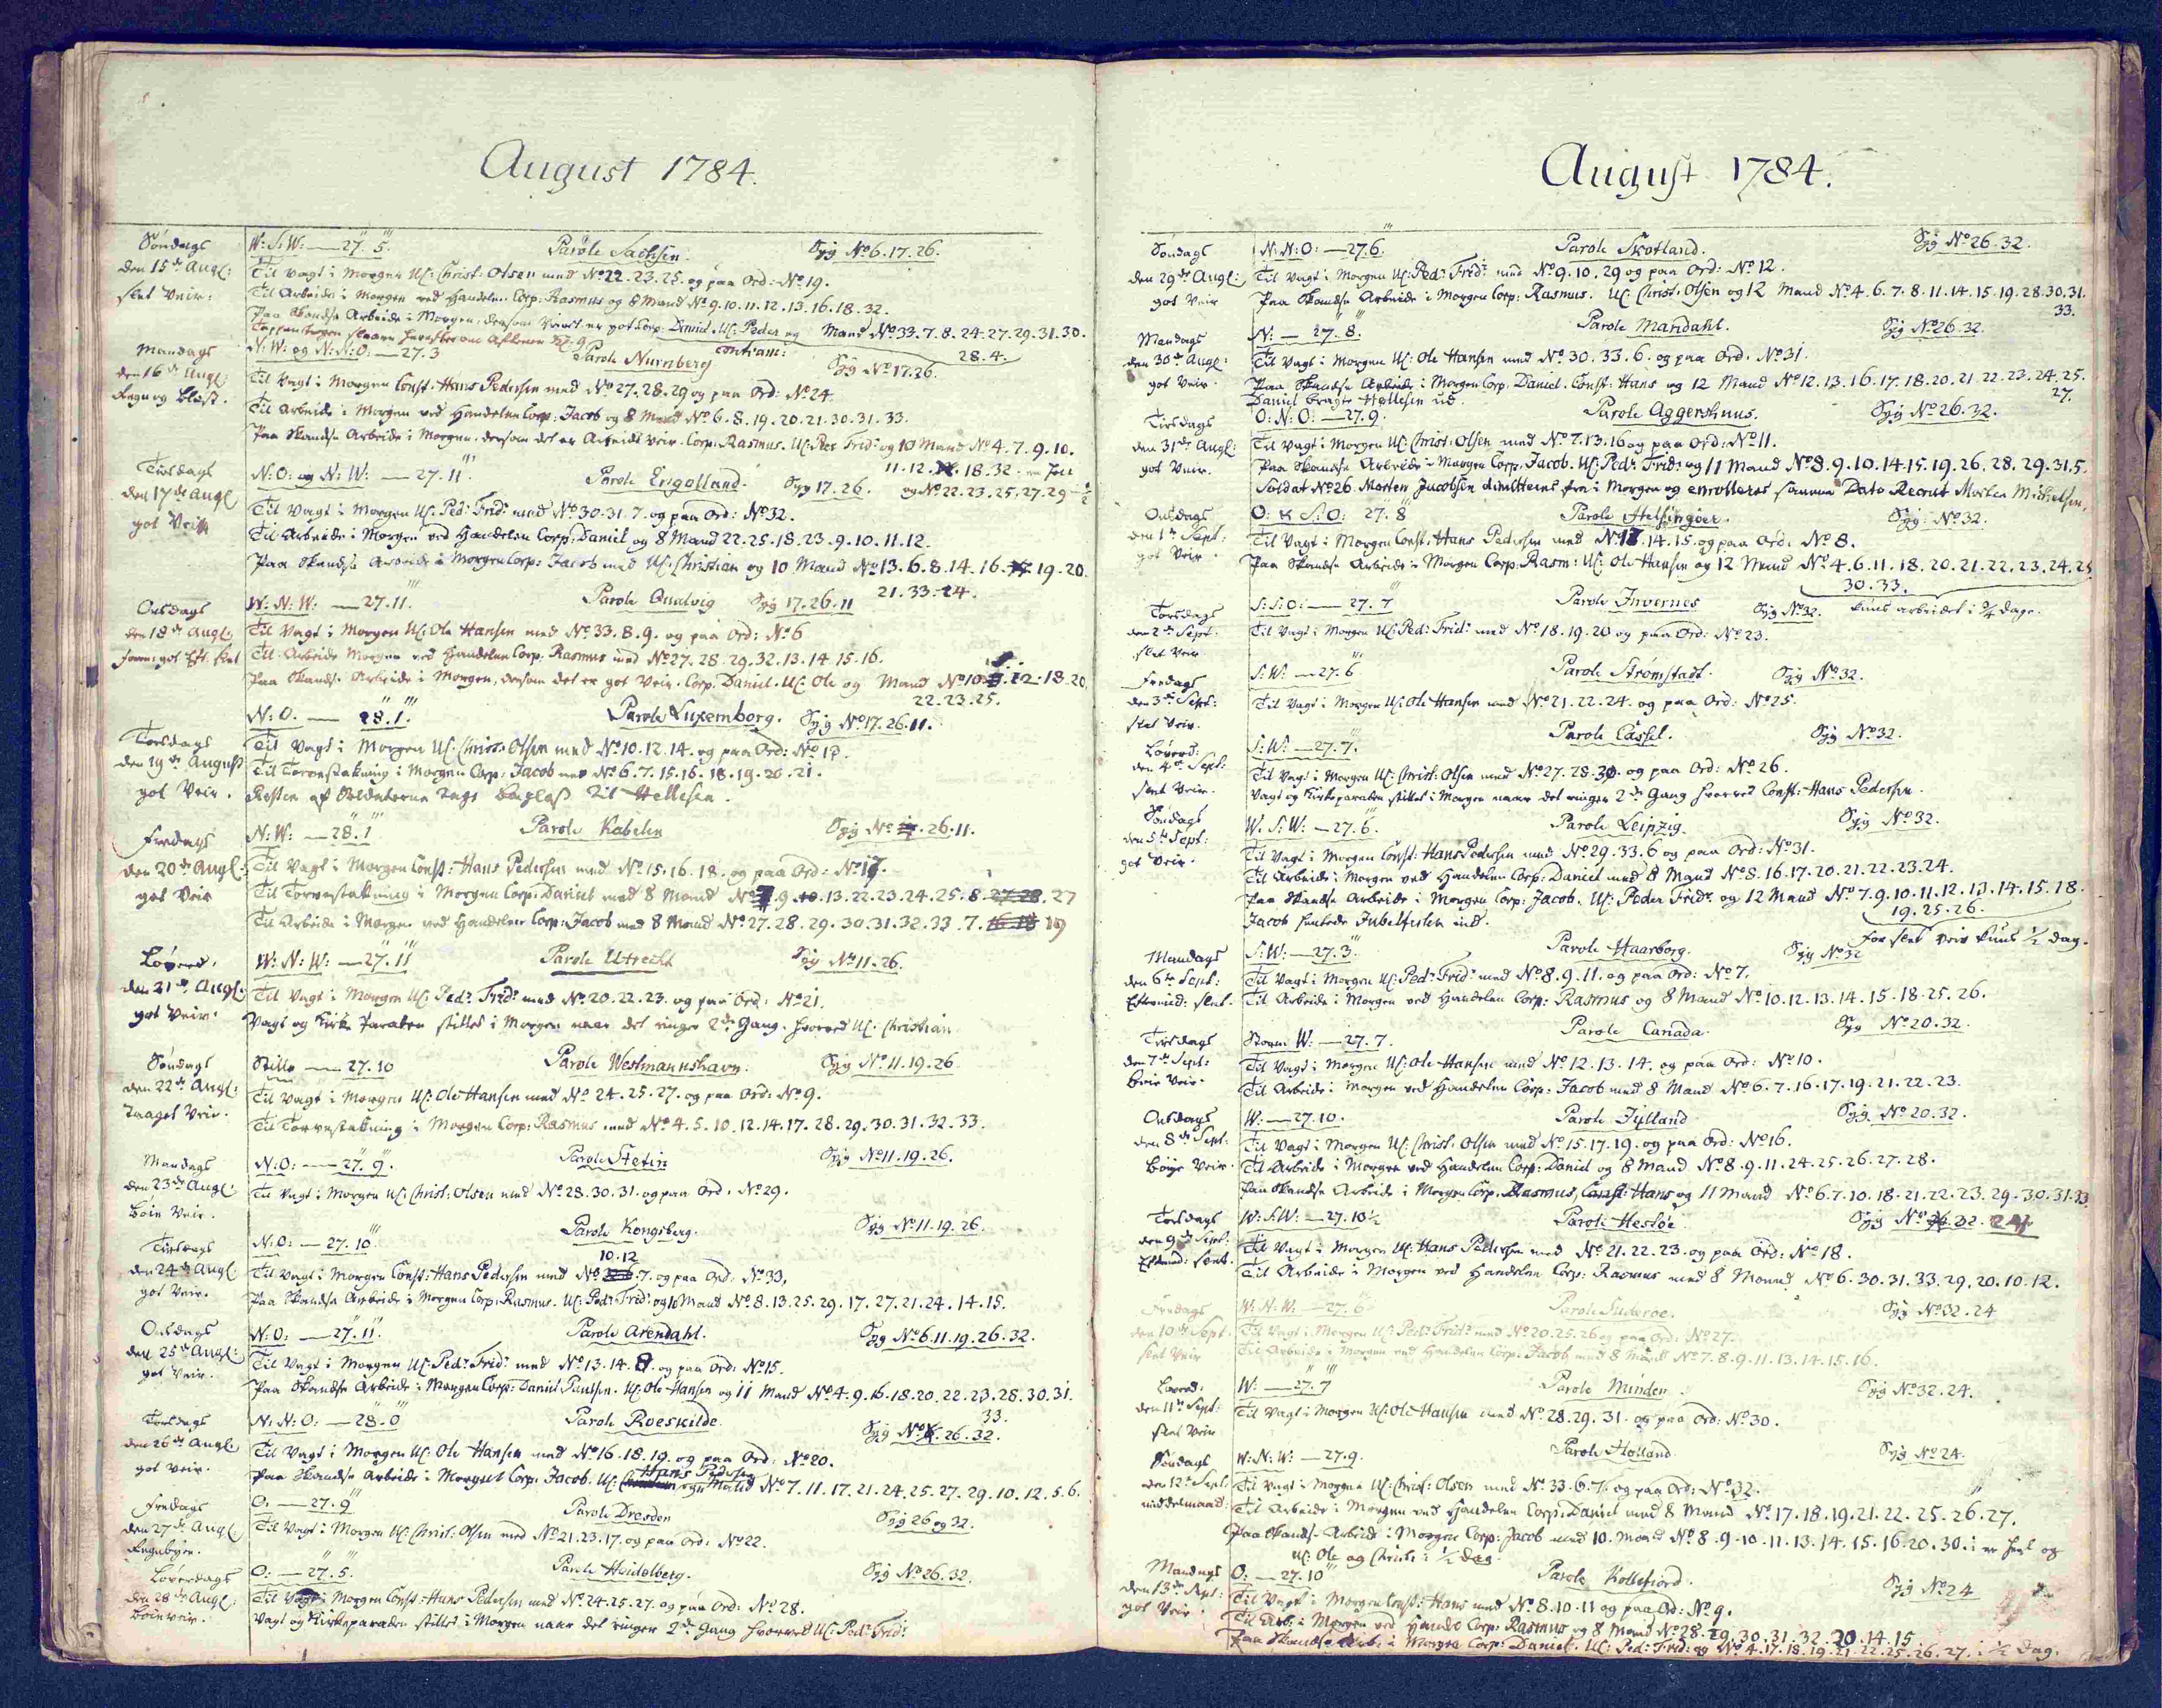 August 1784.
Søndags
den 15de Augl:
slet Veir:
W: S: W: — 27. 5. Parole Sachsen. Syg No 6. 17. 26.
Til Vagt i Morgen Uf: Christ: Olsen med No 22. 23. 25. og paa Ord: No 19.
Til Arbeide i Morgen ved Handelen Corp: Rasmus og 8 Mand No 9. 10. 11. 12. 13. 16. 18. 32.
Paa Skandse Arbeide i Morgen, dersom Veiret er got Corp: Daniel. Uf: Peder og Mand No 33. 7. 8. 24. 27. 29. 31. 30.
28. 4.
contram:
Mandags
den 16de Augl:
Regn og blæst.
N: W: og N: N: O: — 27. 3 Parole Nurnberg Syg No 17. 26.
Til Vagt i Morgen Const: Hans Pedersen med No 27. 28. 29 og paa Ord: No 24.
Til Arbeide i Morgen ved Handelen Corp: Jacob og 8 Mand No 6. 8. 19. 20. 21. 30. 31. 33.
Paa Skandse Arbeide i Morgen, dersom det er Arbeids Veir. Corp: Rasmus. Uf: Ped: Frid: og 10 Mand No 4. 7. 9. 10.
Tirsdags
den 17de Augl
got Veir
N: O: og N: W: — 27. 11. Parole Engelland. Syg 17. 26. og No 22. 23. 25. 27. 29
Til Vagt i Morgen Uf: Ped: Frid: med No 30. 31. 7. og paa Ord: No 32.
Til Arbeide i Morgen ved Handelen Corp: Daniel og 8 Mand 22. 25. 18. 23. 9. 10. 11. 12.
Paa Skandse Arbeide i Morgen Corp: Jacob med Uf: Christian og 10 Mand No 13. 6. 8. 14. 16. 19. 20.
21. 33. 24.
Onsdags
den 18de Augl:
form: got Eft. slet
W: N: W: — 27. 11. Parole Qualvig Syg 17. 26. 11
Til Vagt i Morgen Uf: Ole Hansen med No 33. 8. 9. og paa Ord: No 6
Til Arbeide Morgen ved Handelen Corp: Rasmus med No 27. 28. 29. 32. 13. 14 15. 16.
Paa Skandse Arbeide i Morgen, dersom det er got Veir. Corp. Daniel. Uf: Ole og Mand No 10. 12. 18. 20.
22. 23. 25.
Torsdags
den 19de August
got Veir.
N: O. — 28. 1. Parole Luxemborg. Syg No 17. 26. 11.
Til Vagt i Morgen Uf: Christ: Olsen med No 10. 12. 14. og paa Ord: No 13.
Til Torvestakning i Morgen Corp: Jacob med No 6. 7. 15. 16. 18. 19. 20. 21.
Resten af Soldaterne tage til Hellesen.
Fredags
den 20de Augl:
got Veir
N: W: — 28. 1 Parole Kabelen Syg No 26. 11.
Til Vagt i Morgen Const: Hans Pedersen med No 15. 16. 18. og paa Ord: No 17.
Til Torvestakning i Morgen Corp: Daniel med 8 Mand No 9. 13. 22. 23. 24. 25. 8. 27
Til Arbeide i Morgen ved Handelen Corp: Jacob med 8 Mand No 27. 28. 29. 30. 31. 32. 33. 7. 19
Løverd.
den 21de Augl:
got Veir.
W: N: W: — 27. 11 Parole Utrecht Syg No 11. 26.
Til Vagt i Morgen Uf: Ped: Frid: med No 20. 22. 23. og paa Ord: No 21.
Vagt og Kirke Paraden stilles i Morgen naar det ringer 2de Gang. hvorved Uf: Christian
Søndags
den 22de Augl:
Taaget Veir.
Stille — 27. 10 Parole Westmannshavn. Syg No 11. 19. 26
Til Vagt i Morgen Uf: Ole Hansen med No 24. 25. 27. og paa Ord: No 9.
Til Torvestakning i Morgen Corp: Rasmus med No 4. 5. 10. 12. 14. 17. 28. 29. 30. 31. 32. 33.
Mandags
den 23de Augl:
Bøie Veir.
N: O: — 27. 9. Parole Stetin Syg No 11. 19. 26.
Til Vagt i Morgen Uf: Christ: Olsen med No 28. 30. 31. og paa Ord. No 29.
Tirsdags
den 24de Augl
got Veir.
N: O: — 27. 10 Parole Kongsberg. Syg No 11. 19. 26.
10. 12
Til Vagt i Morgen Const: Hans Pedersen med No 7. og paa Ord: No 33.
Paa Skandse Arbeide i Morgen Corp: Rasmus. Uf: Ped: Frid: og 10 Mand No 8. 13. 25. 29. 17. 27. 21. 24. 14. 15.
Onsdags
den 25de Augl:
got Veir.
N: O: — 27. 11. Parole Arendahl. Syg No 6. 11. 19. 26. 32.
Til Vagt i Morgen Uf: Ped: Frid: med No 13. 14. 8. og paa Ord: No 15.
Paa Skandse Arbeide i Morgen Corp: Daniel Paulsen. Uf: Ole Hansen og 11 Mand No 4. 9. 16. 18. 20. 22. 23. 28. 30. 31.
33.
Torsdags
den 26de Augl:
got Veir.
N: N: O: — 28. 0 Parole Roeskilde Syg No 26. 32.
Til Vagt i Morgen Uf: Ole Hansen med No 16. 18. 19. og paa Ord: No 20.
Hans Pedersen
Paa Skandse Arbeide i Morgen Corp: Jacob. Uf: og Mand No 7. 11. 17. 21. 24. 25. 27. 29. 10. 12. 5. 6.
Fredags
den 27de Augl
Regnbyer.
O: — 27. 9 Parole Dresden Syg 26 og 32.
Til Vagt i Morgen Uf: Christ: Olsen med No 21. 23. 17. og paa Ord: No 22.
Loverdags
den 28de Augl:
Bøieveir.
O: — 27. 5. Parole Heidelberg. Syg No 26. 32.
Til Vagt i Morgen Const: Hans Pedersen med No 24. 25. 27. og paa Ord: No 28.
Vagt og Kirkeparaden stilles i Morgen naar det ringer 2de Gang hvorved Uf: Ped: Frid:
August 1784.
Søndags
den 29de Augl:
got Veir
N: N: O: — 27. 6. Parole Skotland. Syg No 26. 32.
Til Vagt i Morgen Uf: Ped: Frid: med No 9. 10. 29 og paa Ord: No 12.
Paa Skandse Arbeide i Morgen Corp: Rasmus. Uf: Christ: Olsen og 12 Mand No 4. 6. 7. 8. 11. 14. 15. 19. 28. 30. 31.
33.
Mandags
den 30de Augl:
got Veir.
N: — 27. 8. Parole Mandahl. Syg No 26. 32.
Til Vagt i Morgen Uf: Ole Hansen med No 30. 33. 6. og paa Ord. No 31.
Paa Skandse Arbeide i Morgen Corp. Daniel. Const: Hans og 12 Mand No 12. 13. 16. 17. 18. 20. 21. 22. 23. 24. 25.
27.
Daniel bragte Hellesen ud.
Tirsdags
den 31de Augl:
got Veir.
O: N: O: — 27. 9. Parole Aggershuus. Syg No 26. 32.
Til Vagt i Morgen Uf: Christ: Olsen med No 7. 13. 16 og paa Ord: No 11.
Paa Skandse Arbeide i Morgen Corp. Jacob. Uf: Ped: Frid: og 11 Mand No 8. 9. 10. 14. 15. 19. 26. 28. 29. 31. 5.
Soldat No 26 Morten Jacobsen dimitteres fra i Morgen og enrolleres samme Dato Recrut Morten Michelsen.
Onsdags
den 1te Sept:
got Veir.
O: S: O: 27. 8 Parole Helsingøer. Syg: No 32.
Til Vagt i Morgen Const: Hans Pedersen med No 17. 14. 15. og paa Ord. No 8.
Paa Skandse Arbeide i Morgen Corp: Rasm: Uf: Ole Hansen og 12 Mand No 4. 6. 11. 18. 20. 21. 22. 23. 24. 25
30. 33.
kuns arbeidet i 3/4 dage.
Torsdags
den 2de Sept.
slet Veir
S: S: O: — 27. 7 Parole Invernes Syg No 32.
Til Vagt i Morgen Uf: Ped: Frid: med No 18. 19. 20 og paa Ord: No 23.
Fredags
den 3de Sept:
slet Veir.
S: W: — 27. 6 Parole Strömstadt. Syg No 32.
Til Vagt i Morgen Uf: Ole Hansen med No 21. 22. 24. og paa Ord: No 25.
Løverd:
den 4de Sept:
slet Veir.
S: W: — 27. 7. Parole Cassel. Syg No 32.
Til Vagt i Morgen Uf: Christ: Olsen med No 27. 28. 30. og paa Ord: No 26.
Vagt og Kirkeparaden stilles i Morgen naar det ringer 2de Gang hvorved Const: Hans Pedersen.
Søndags
den 5te Sept:
got Veir.
W. S: W: — 27. 6. Parole Leipzig. Syg No 32.
Til Vagt i Morgen Const: Hans Pedersen med No 29. 33. 6 og paa Ord: No 31.
Til Arbeide i Morgen ved Handelen Corp. Daniel med 8 Mand No 8. 16. 17. 20. 21. 22. 23. 24.
Paa Skandse Arbeide i Morgen Corp: Jacob. Uf: Peder Frid: og 12 Mand No 7. 9. 10. 11. 12. 13. 14. 15. 18.
19. 25. 26.
for slet Veir kuns 1/2 dag.
Mandags
den 6te Sept:
Eftermid: slet.
S: W: — 27. 3. Parole Haarborg. Syg No 32
Til Vagt i Morgen Uf: Ped: Frid: med No 8. 9. 11. og paa Ord: No 7.
Til Arbeide i Morgen ved Handelen Corp: Rasmus og 8 Mand No 10. 12. 13. 14. 15. 18. 25. 26.
Tirsdags
den 7de Sept:
Bøie Veir.
Storm W: — 27. 7. Parole Canada. Syg No 20. 32.
Til Vagt i Morgen Uf: Ole Hansen med No 12. 13. 14. og paa Ord: No 10.
Til Arbeide i Morgen ved Handelen Corp: Jacob med 8 Mand No 6. 7. 16. 17. 19. 21. 22. 23.
Onsdags
den 8de Sept:
Bøye Veir.
W: — 27. 10. Parole Jylland Syg. No 20. 32.
Til Vagt i Morgen Uf: Christ. Olsen med No 15. 17. 19. og paa Ord: No 16.
Til Arbeide i Morgen ved Handelen Corp: Daniel og 8 Mand No 8. 9. 11. 24. 25. 26. 27. 28.
Paa Skandse Arbeide i Morgen Corp. Rasmus, Const: Hans og 11 Mand No 6. 7. 10. 18. 21. 22. 23. 29. 30. 31. 33
Torsdags
den 9de Sept:
W: S: W: — 27. 10 1/2 Parole Hestøe. Syg No 32.
Til Vagt i Morgen Uf: Hans Pedersen med No 21. 22. 23. og paa Ord: No 18.
Til Arbeide i Morgen ved Handelen Corp: Rasmus med 8 Mand No 6. 30. 31. 33. 29. 20. 10. 12.
Fredags
den 10de Sept.
slet Veir
W: N: W. — 27. 6 Parole Suderøe. Syg No 32. 24
Til Vagt i Morgen Uf: Ped: Frid: med No 20. 25. 26 og paa Ord: No 27.
Til Arbeide i Morgen ved Handelen Corp: Jacob med 8 Mand No 7. 8. 9. 11. 13. 14. 15. 16.
Løverd:
den 11te Sept:
slet Veir
W: — 27. 7 Parole Minden. Syg No 32. 24.
Til Vagt i Morgen Uf: Ole Hansen med No 28. 29. 31. og paa Ord: No 30.
Søndags
den 12te Sept:
middelmaad:
W: N: W: — 27. 9. Parole Holland Syg No 24.
Til Vagt i Morgen Uf: Christ: Olsen med No 33. 6. 7. og paa Ord: No 32.
Til Arbeide i Morgen ved Handelen Corp: Daniel med 8 Mand No 17. 18. 19. 21. 22. 25. 26. 27.
Paa Skandse Arbeide i Morgen Corp: Jacob med 10. Mand No 8. 9. 10. 11. 13. 14. 15. 16. 20. 30. og
Uf: Ole og Christ: i 1/2 dag.
Mandags
den 13de Sept:
got Veir.
O: — 27. 10 Parole Kollefiord. Syg No 24
Til Vagt i Morgen Const: Hans med No 8. 10. 11 og paa Ord: No 9.
Til Arb: i Morgen ved Handel Corp: Rasmus og 8 Mand No 28. 29. 30. 31. 32. 20. 14. 15
Paa Skandse Arb: i Morgen Corp: Daniel. Uf: Ped: Frid: og No 4. 17. 18. 19. 21. 22. 25. 26. 27. i 1/2 Dag.